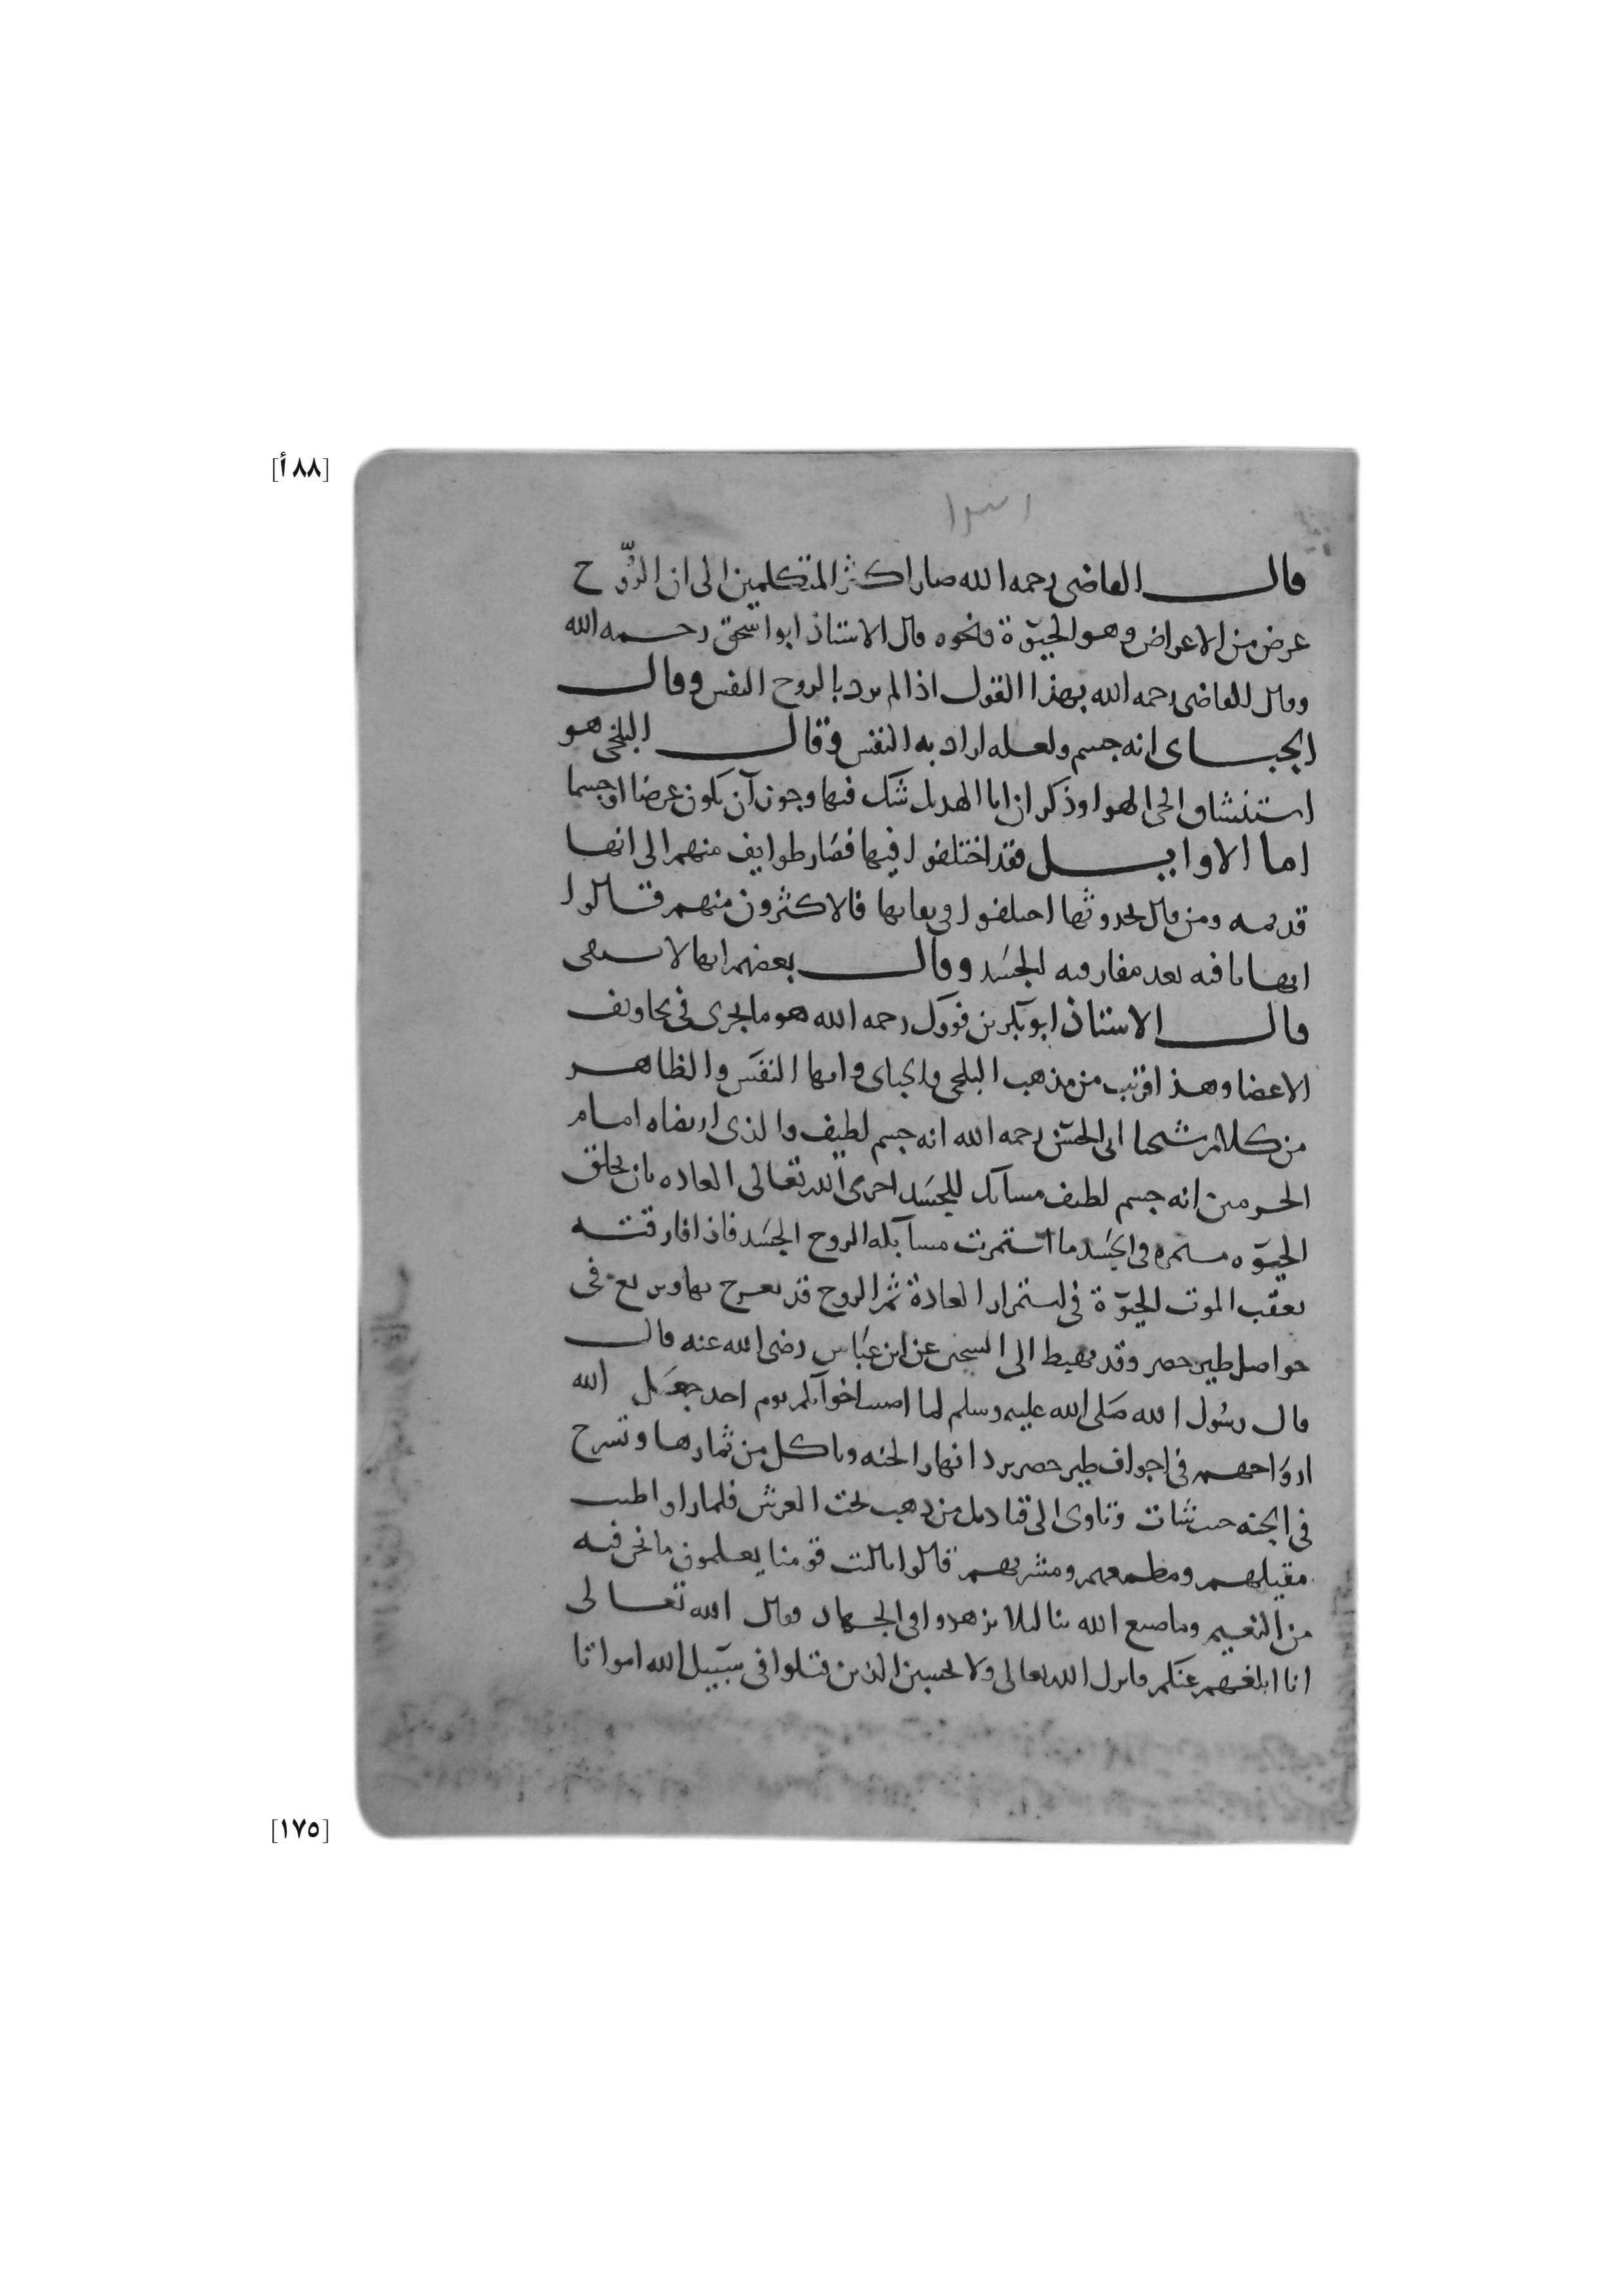 [٨٨أ]
قال القاضى رحمه الله صار اكثر المتكلمين الى ان الرُّوح
عرض من الاعراض وهو الحيوة ونحوه قال الاستاذ ابو اسحق رحمه الله
وقال القاضى رحمه الله بهذا القول اذا لم يرد بالروح النفس وقال
الجباى انه جسم ولعله اراد به النفس وقال البلخى هو
استنشاق الحى الهوا وذكر ان ابا الهديل شك فيها وجوز ان يكون عرضا او جسما
اما الاوايل فقد اختلفوا فيها فصار طوايف منهم الى انها
قديمه ومن قال بحدوثها اختلفوا فى بقايها فالاكثرون منهم قالوا
انها باقيه بعد مفارقه الجسد وقال بعضهم انها لا تبقى
قال الاستاذ ابو بكر بن فورك رحمه الله هو ما يجرى فى تجاويف
الاعضا وهذا اقرب من مذهب البلخى والجباى وانها النفس والظاهر
من كلام شيخنا ابى الحسن رحمه الله انه جسم لطيف والذى ارتضاه امام
الحرمين انه جسم لطيف مسابك للجسد اجرى الله تعالى العاده بان يخلق
الحيوه مستمره فى الجسد ما استمرت مسابكه الروح الجسد فاذا فارقته
يعقب الموت الحيوة فى استمرار العادة ثم الروح قد يعرج بها وترفع فى
حواصل طير خضر وقد يهبط الى السجن عن ابن عباس رضى الله عنه قال
قال رسول الله صلى الله عليه وسلم لما اصيب اخوانكم يوم احد جعل الله
ارواحهم فى اجواف طير خضر يرد انهار الجنه وياكل من ثمارها وتسرح
فى الجنه حيث شات وتاوى الى قناديل من ذهب تحت العرش فلما راوا طيب
مقيلهم ومطعمهم ومشربهم قالوا ياليت قومنا يعلمون ما نحن فيه
من النعيم وما صنع الله بنا ليلا يزهدوا فى الجهاد فقال الله تعالى
انا ابلغهم عنكم فانزل الله تعالى ولا تحسبن الذين قتلوا فى سبيل الله امواتا
[١٧٥]